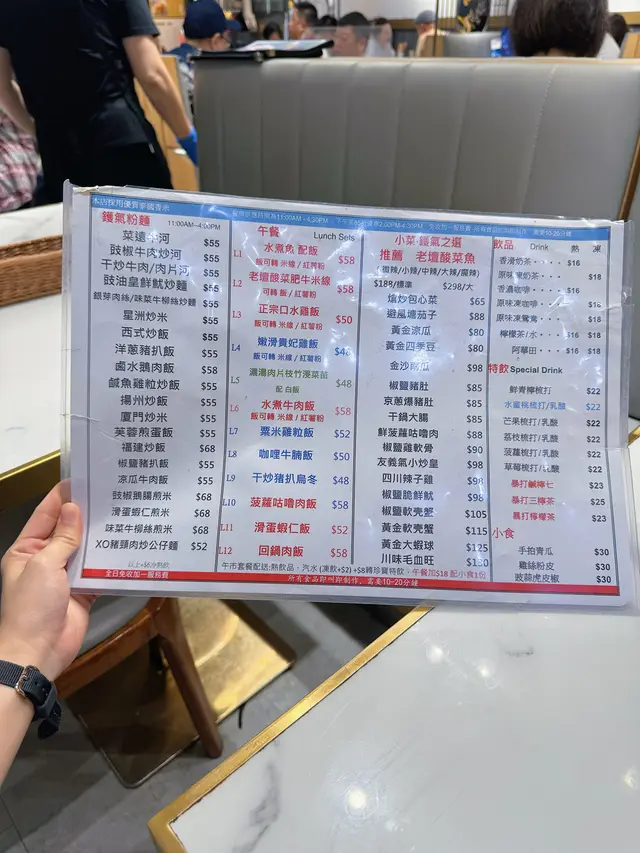 本店採用優質泰國香米
鑊氣粉麵
11:00AM-4:00PM
菜遠牛河 $55
豉椒牛肉炒河 $55
干炒牛肉/肉片河 $55
豉油皇鮮魷炒麵 $55
銀芽肉絲/味菜牛柳絲炒麵 $55
星洲炒米 $55
西式炒飯 $55
洋蔥豬扒飯 $55
鹵水鵝肉飯 $58
鹹魚雞粒炒飯 $55
揚州炒飯 $55
廈門炒米 $55
芙蓉煎蛋飯 $55
福建炒飯 $68
椒鹽豬扒飯 $55
涼瓜牛肉飯 $55
豉椒鵝腸煎米 $68
滑蛋蝦仁煎米 $68
味菜牛柳絲煎米 $68
XO豬頸肉炒公仔麵 $52
以上+$6冷熱飲
全日免收加一服務費
午餐 Lunch Sets
L1 水煮魚 配飯 $58
飯可轉 米線 / 紅薯粉
L2 老壇酸菜肥牛米線 $58
可轉 飯 / 紅薯粉
L3 正宗口水雞飯 $50
飯可轉 米線 / 紅薯粉
L4 嫩滑貴妃雞飯 $48
飯可轉 米線 / 紅薯粉
L5 濃湯肉片枝竹浸菜苗 $48
配 白飯
L6 水煮牛肉飯 $58
飯可轉 米線 / 紅薯粉
L7 粟米雞粒飯 $52
L8 咖哩牛腩飯 $50
L9 干炒豬扒烏冬 $48
L10 菠蘿咕嚕肉飯 $58
L11 滑蛋蝦仁飯 $52
L12 回鍋肉飯 $58
午市套餐配送:熱飲品、汽水 (凍飲+$2) +$8轉珍寶特飲，午餐加$18 配小食1份
所有食品即叫即制作，需要10-20分鐘
小菜·鑊氣之選
推薦 老壇酸菜魚
(微辣/小辣/中辣/大辣/麻辣)
$188/標準 $298/大
熗炒包心菜 $65
避風塘茄子 $88
黃金涼瓜 $80
黃金四季豆 $80
金沙南瓜 $98
椒鹽豬肚 $85
京蔥爆豬肚 $85
干鍋大腸 $85
鮮菠蘿咕嚕肉 $88
椒鹽雞軟骨 $90
友義氣小炒皇 $98
四川辣子雞 $98
椒鹽脆鮮魷 $98
椒鹽軟壳蟹 $105
黃金軟壳蟹 $115
黃金大蝦球 $125
川味毛血旺 $130
飲品 Drink 熱 凍
香滑奶茶 $16
原味凍奶茶 $18
香濃咖啡 $16
原味凍咖啡 $18
原味凍鴛鴦 $18
檸檬茶/水 $16 $18
阿華田 $16 $18
特飲 Special Drink
鮮青檸梳打 $22
水蜜桃梳打/乳酸 $22
芒果梳打/乳酸 $22
荔枝梳打/乳酸 $22
菠蘿梳打/乳酸 $22
草莓梳打/乳酸 $22
暴打鹹檸七 $23
暴打三檸茶 $25
暴打檸檬茶 $23
小食
手拍青瓜 $30
雞絲粉皮 $30
豉蒜虎皮椒 $30